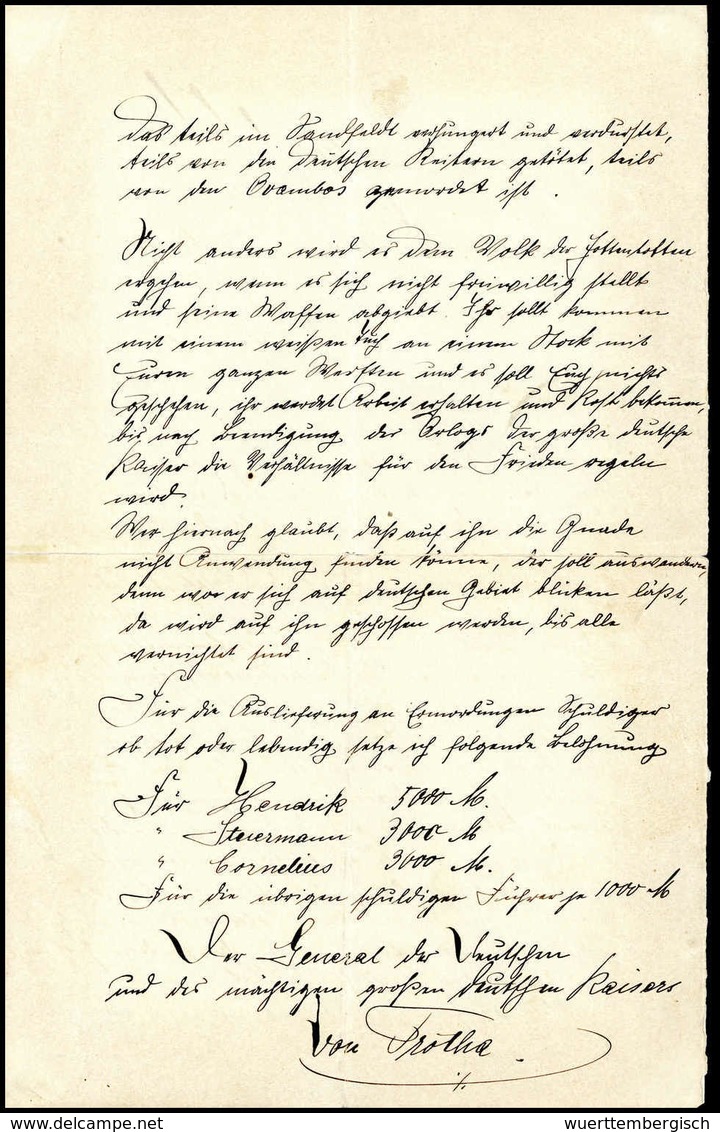 das teils im Sandfeldt verhungert und verdurstet,
teils von den Deutschen Reitern getötet, teils
von den Ovambos gemordet ist.
Nicht anders wird es dem Volk der Hottentotten
ergehen, wenn es sich nicht freiwillig stellt
und seine Waffen abgiebt. Ihr sollt kommen
mit einem weißen Tuch an einem Stock mit
Euren ganzen Werften und es soll Euch nichts
geschehen, ihr werdet Arbeit erhalten und Kost bekommen,
bis nach Beendigung des Orlogs der große deutsche
Kaiser die Verhältnisse für den Frieden regeln
wird.
Wer hiernach glaubt, daß auf ihn die Gnade
nicht Anwendung finden könne, der soll auswandern,
denn wo er sich auf deutschen Gebiet blicken läßt,
da wird auf ihn geschossen werden, bis alle
vernichtet sind.
Für die Auslieferung an Ermordungen Schuldiger
ob tot oder lebendig setze ich folgende Belohnung
Für Hendrik 5000 M.
" Stuermann 3000 M
" Cornelius 3000 M.
Für die übrigen schuldigen Führer je 1000 M
Der General der Deutschen
und des mächtigen großen deutschen Kaisers
von Trotha.
wuerttembergisch